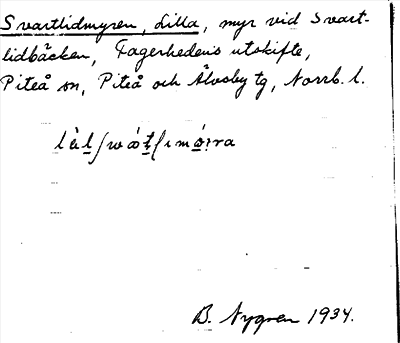 Svartlidmyren, Lilla, myr vid Svart-
lidbäcken, Fagerhedens utskifte,
Piteå sn, Piteå och Älvsby tg, Norrb. l.
B. Nygren 1934.